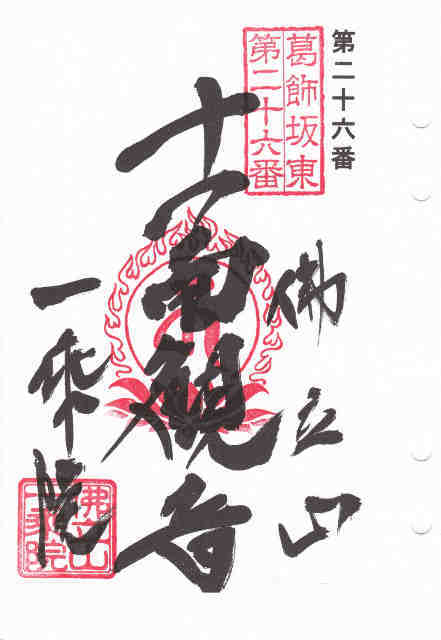 第二十六番
葛飾坂東
第二十六番
佛立山
十一面観音
一乗院
佛立山
一乗院